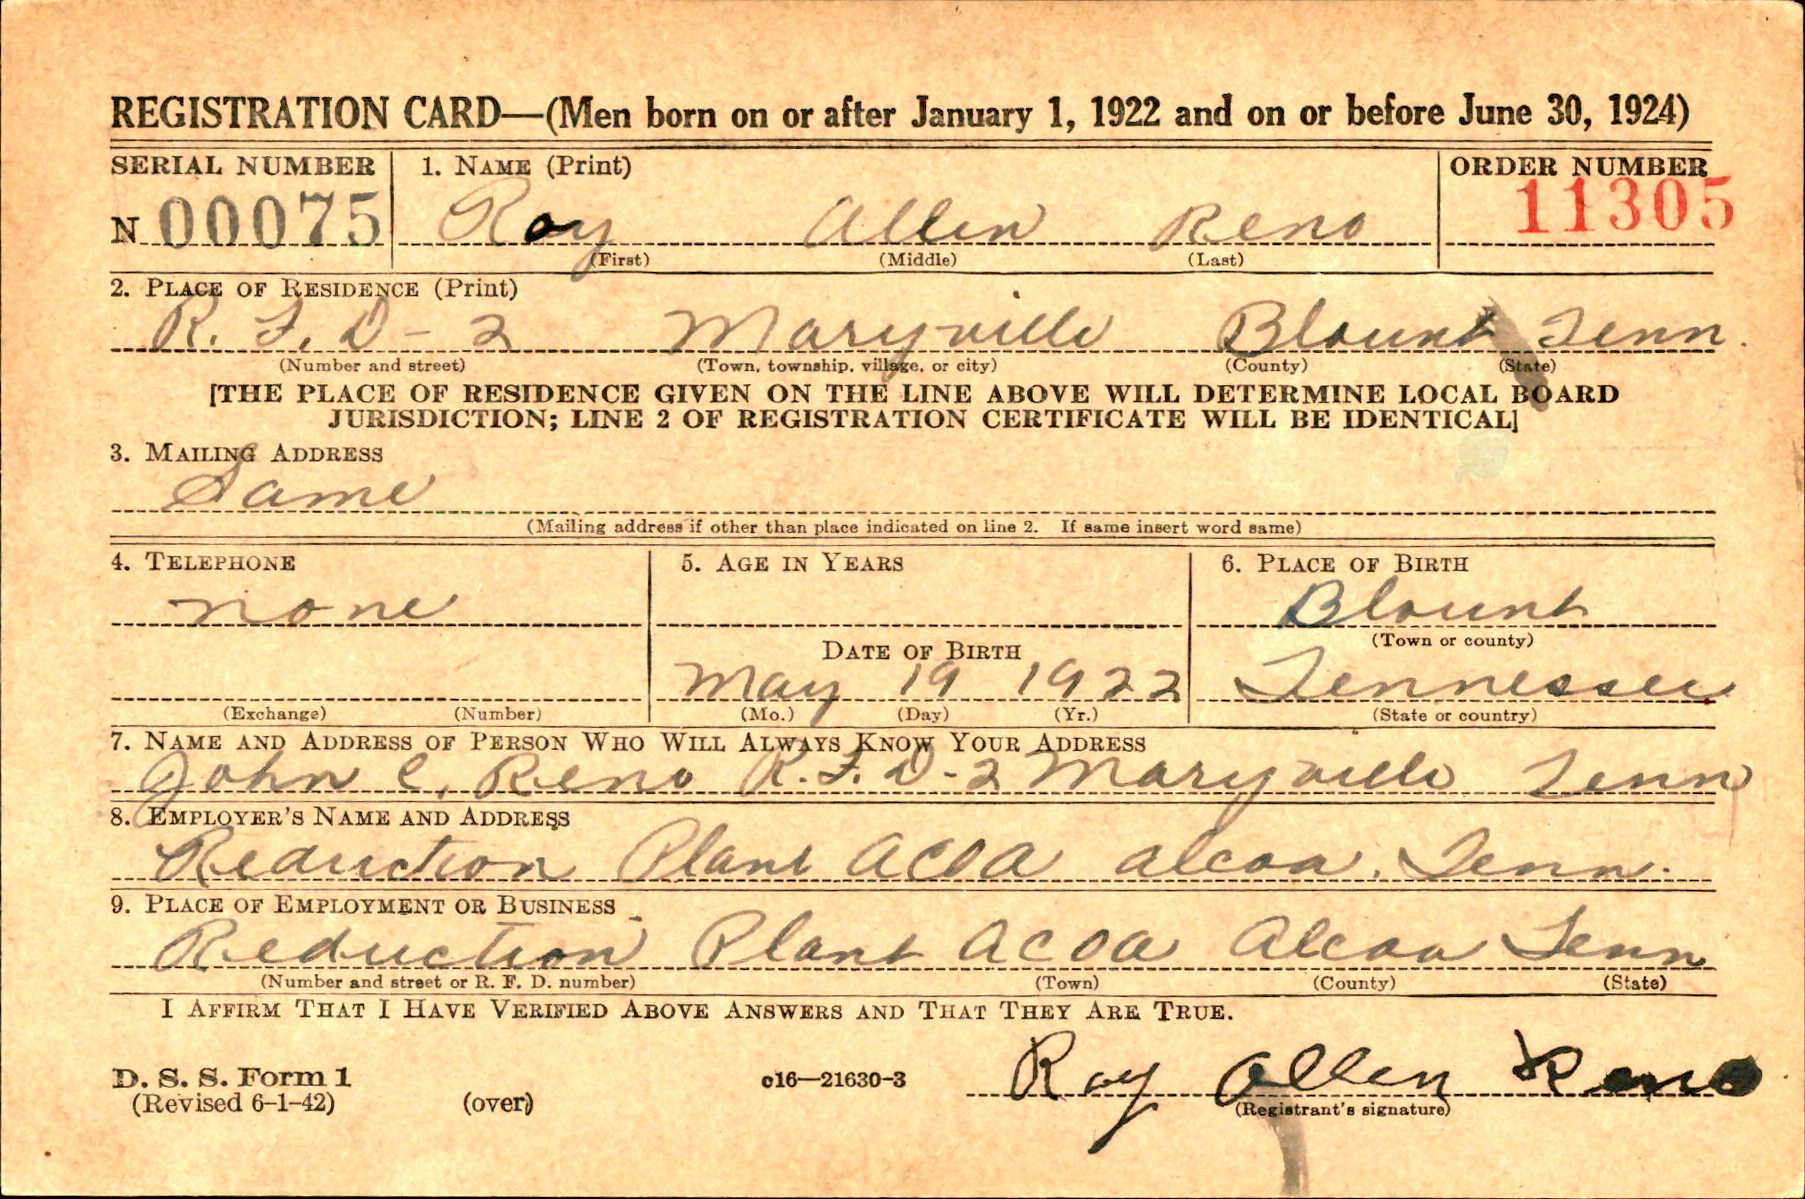 REGISTRATION CARD—(Men born on or after January 1, 1922 and on or before June 30, 1924)
SERIAL NUMBER 1. NAME (Print) ORDER NUMBER
N 00075 Roy Allen Reno 11305
(First) (Middle) (Last)
2. PLACE OF RESIDENCE (Print)
R. F. D - 2 Maryville Blount Tenn.
(Number and street) (Town, township, village, or city) (County) (State)
[THE PLACE OF RESIDENCE GIVEN ON THE LINE ABOVE WILL DETERMINE LOCAL BOARD
JURISDICTION; LINE 2 OF REGISTRATION CERTIFICATE WILL BE IDENTICAL]
3. MAILING ADDRESS
Same
(Mailing address if other than place indicated on line 2. If same insert word same)
4. TELEPHONE 5. AGE IN YEARS 6. PLACE OF BIRTH
none Blount
(Town or county)
DATE OF BIRTH
May 19 1922 Tennessee
(Exchange) (Number) (Mo.) (Day) (Yr.) (State or country)
7. NAME AND ADDRESS OF PERSON WHO WILL ALWAYS KNOW YOUR ADDRESS
John C. Reno R. F. D - 2 Maryville Tenn
8. EMPLOYER'S NAME AND ADDRESS
Reduction Plant ACOA alcoa, Tenn.
9. PLACE OF EMPLOYMENT OR BUSINESS
Reduction Plant ACOA Alcoa Tenn
(Number and street or R. F. D. number) (Town) (County) (State)
I AFFIRM THAT I HAVE VERIFIED ABOVE ANSWERS AND THAT THEY ARE TRUE.
D. S. S. Form 1
(Revised 6-1-42) (over) c16—21630-3 Roy Allen Reno
(Registrant's signature)